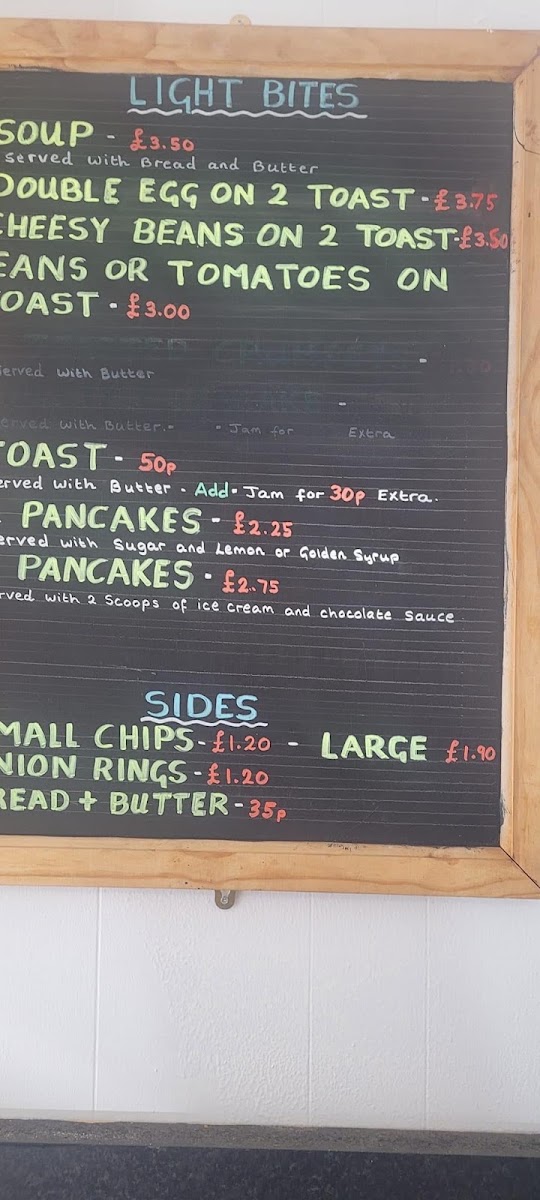 LIGHT BITES
SOUP - £3.50
served with Bread and Butter
DOUBLE EGG ON 2 TOAST - £3.75
CHEESY BEANS ON 2 TOAST-£3.50
EANS OR TOMATOES ON
OAST - £3.00
-
served with Butter
-
erved with Butter.- - Jam for Extra
TOAST - 50p
erved with Butter - Add - Jam for 30p Extra.
PANCAKES - £2.25
erved with Sugar and Lemon or Golden Syrup
PANCAKES - £2.75
rved with 2 Scoops of ice cream and chocolate Sauce
SIDES
MALL CHIPS - £1.20 - LARGE £1.90
NION RINGS - £1.20
READ + BUTTER - 35p